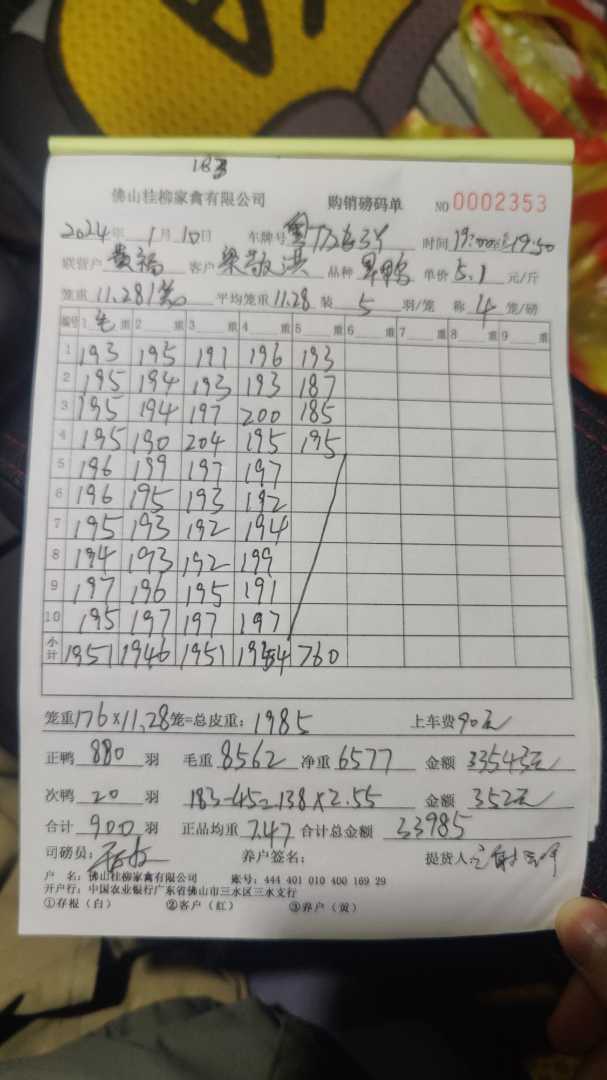 183
佛山桂柳家禽有限公司 购销磅码单 NO 0002353
2024年 1月10日 车牌号 粤 时间 19:00 19:50
联营户 黄福 客户 梁敬洪 品种 鸭 单价 5.1 元/斤
笼重 11.281 平均笼重 11.28 装 5 羽/笼 称 4 笼/磅
编号 1 毛 重 2 重 3 重 4 重 5 重 6 重 7 重 8 重 9 重
1 193 195 191 196 193
2 195 194 193 193 187
3 195 194 197 200 185
4 195 190 204 195 195
5 196 199 197 197
6 196 195 193 192
7 195 193 192 194
8 194 193 192 199
9 197 196 195 191
10 195 197 197 197
小计 1951 1946 1951 1954 760
笼重 176×11.28 笼=总皮重: 1985 上车费 90元
正鸭 880 羽 毛重 8562 净重 6577 金额 33543元
次鸭 20 羽 183-45=138×2.55 金额 352元
合计 900 羽 正品均重 7.47 合计总金额 33985
司磅员: 养户签名: 提货人:
户 名: 佛山桂柳家禽有限公司 账号: 444 401 010 400 169 29
开户行: 中国农业银行广东省佛山市三水区三水支行
①存根(白) ②客户(红) ③养户(黄)